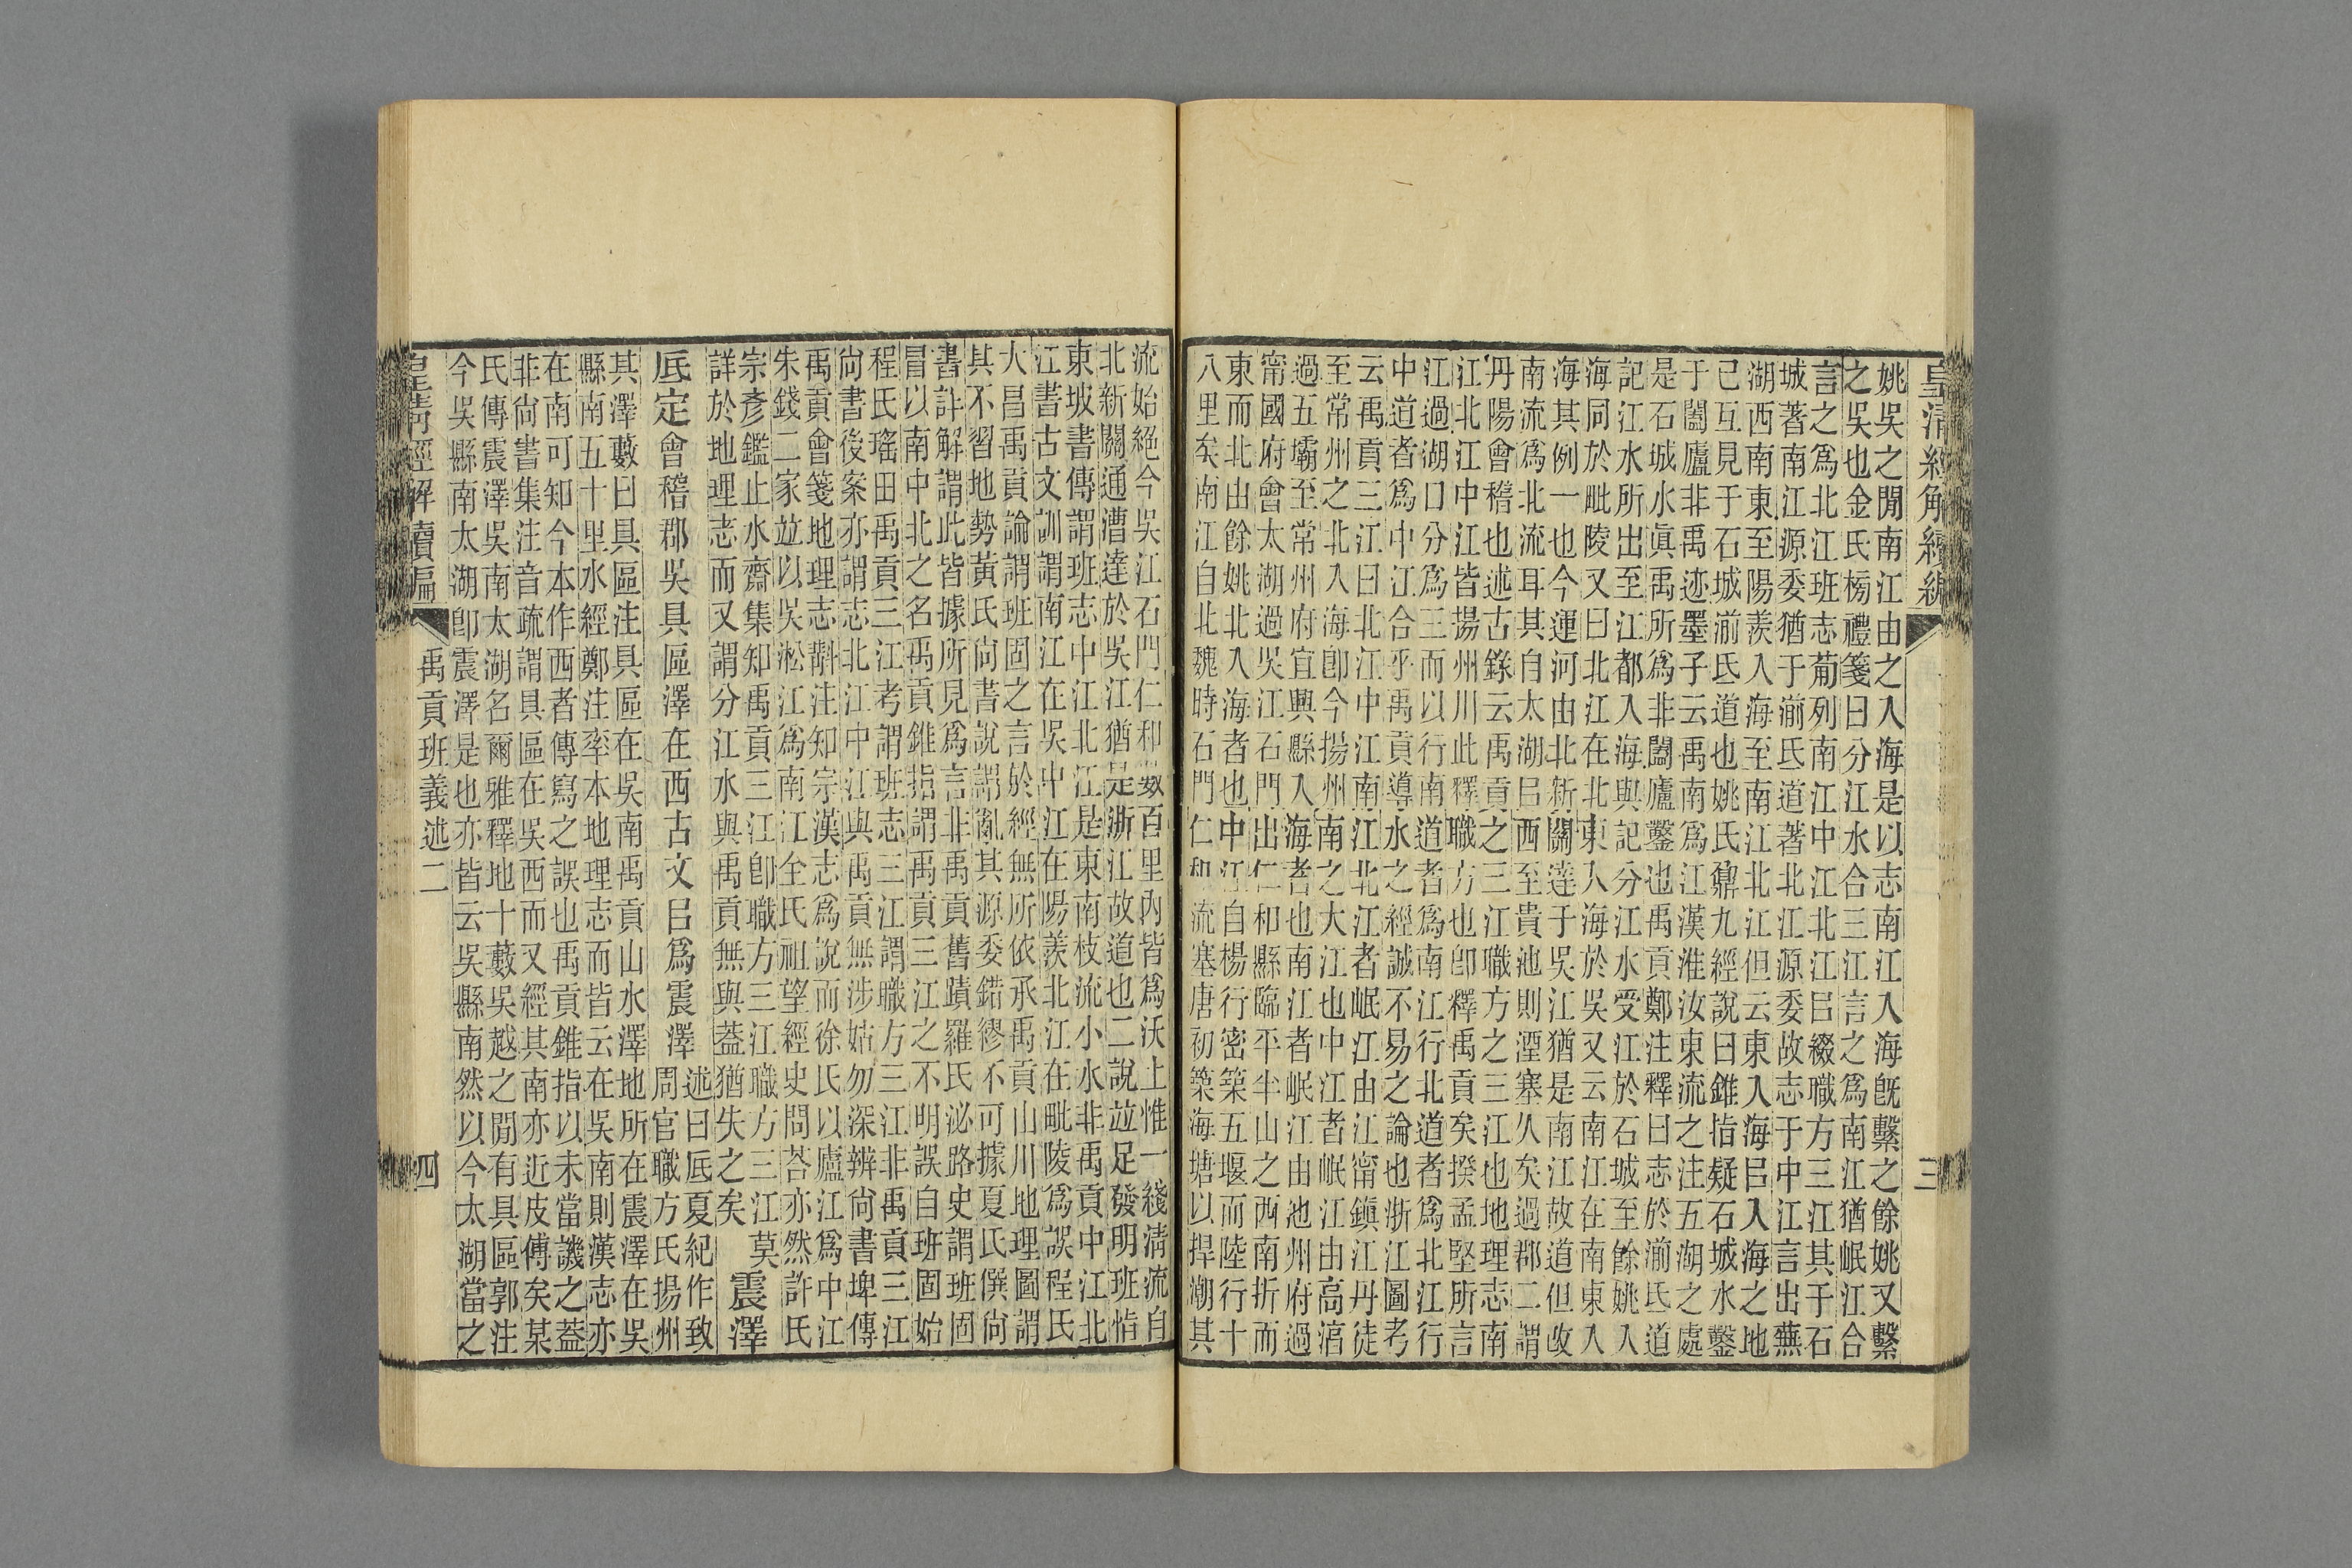 皇清經解續編
三
姚吳之閒南江由之入海是以志南江入海旣繫之餘姚又繫
之吳也金氏榜禮箋曰分江水合三江言之爲南江猶岷江合
言之爲北江班志葡列南江中江北江㠯綴職方三江其于石
城著南江源委猶于湔氐道著北江源委故志于中江言出蕪
湖西南東至陽羨入海至南江北江但云東入海㠯入海之地
已互見于石城湔氐道也姚氏鼐九經說曰錐指疑石城水鑿
于闔廬非禹迹墨子云禹南爲江漢淮汝東流之注五湖之處
是石城水眞禹所爲非闔廬鑿也禹貢鄭注釋曰志於湔氐道
記江水所出至江都入海與記分江水受江於石城至餘姚入
海同於毗陵又曰北江在北東入海於吳又云南江在南東入
海其例一也今運河由北新關達于吳江猶是南江故道但改
南流爲北流耳其自太湖㠯西至貴池則湮塞久矣過郡二謂
丹陽會稽也述古錄云禹貢之三江職方之三江也地理志南
江北江中江皆揚州川此釋職方也卽釋禹貢矣揆孟堅所言
江過湖口分爲三而以行南道者爲南江行北道者爲北江行
中道者爲中江合乎禹貢導水之經誠不易之論也浙江圖考
云禹貢三江曰北江中江南江北江者岷江由江甯鎭江丹徒
至常州之北入海卽今揚州南之大江也中江者岷江由高湻
過五壩至常州府宜興縣入海者也南江者岷江由池州府過
甯國府會太湖過吳江石門出仁和縣臨平半山之西南折而
東而北由餘姚北入海者也中江自楊行密築五堰而陸行十
八里矣南江自北魏時石門仁和流塞唐初築海塘以捍潮其
流始絕今吳江石門仁和數百里內皆爲沃土惟一綫淸流自
北新關通漕達於吳江猶是浙江故道也二說竝足發明班恉
東坡書傳謂班志中江北江是東南枝流小水非禹貢中江北
江書古文訓謂南江在吳中江在陽羨北江在毗陵爲誤程氏
大昌禹貢論謂班固之言於經無所依承禹貢山川地理圖謂
其不習地勢黃氏尙書說謂亂其源委錯繆不可據夏氏僎尙
書詳解謂此皆據所見爲言非禹貢舊蹟羅氏泌路史謂班固
冒以南中北之名禹貢錐指謂禹貢三江之不明誤自班固始
程氏瑤田禹貢三江考謂班志三江謂職方三江非禹貢三江
尙書後案亦謂志北江中江與禹貢無涉姑勿深辨尙書埤傳
禹貢會箋地理志斠注知宗漢志爲說而徐氏以廬江爲中江
朱錢二家竝以吳淞江爲南江全氏祖望經史問荅亦然許氏
宗彥鑑止水齋集知禹貢三江卽職方三江職方三江莫
詳於地理志而又謂分江水與禹貢無與蓋猶失之矣
震澤
厎定會稽郡吳具區澤在西古文㠯爲震澤
述曰厎夏紀作致
周官職方氏揚州
其澤藪曰具區注具區在吳南禹貢山水澤地所在震澤在吳
縣南五十里水經鄭注率本地理志而皆云在吳南則漢志亦
在南可知今本作西者傳寫之誤也禹貢錐指以未當譏之蓋
非尙書集注音疏謂具區在吳西而又經其南亦近皮傅矣某
氏傳震澤吳南太湖名爾雅釋地十藪吳越之閒有具區郭注
今吳縣南太湖卽震澤是也亦皆云吳縣南然以今太湖當之
皇清經解續編
禹貢班義述二
四